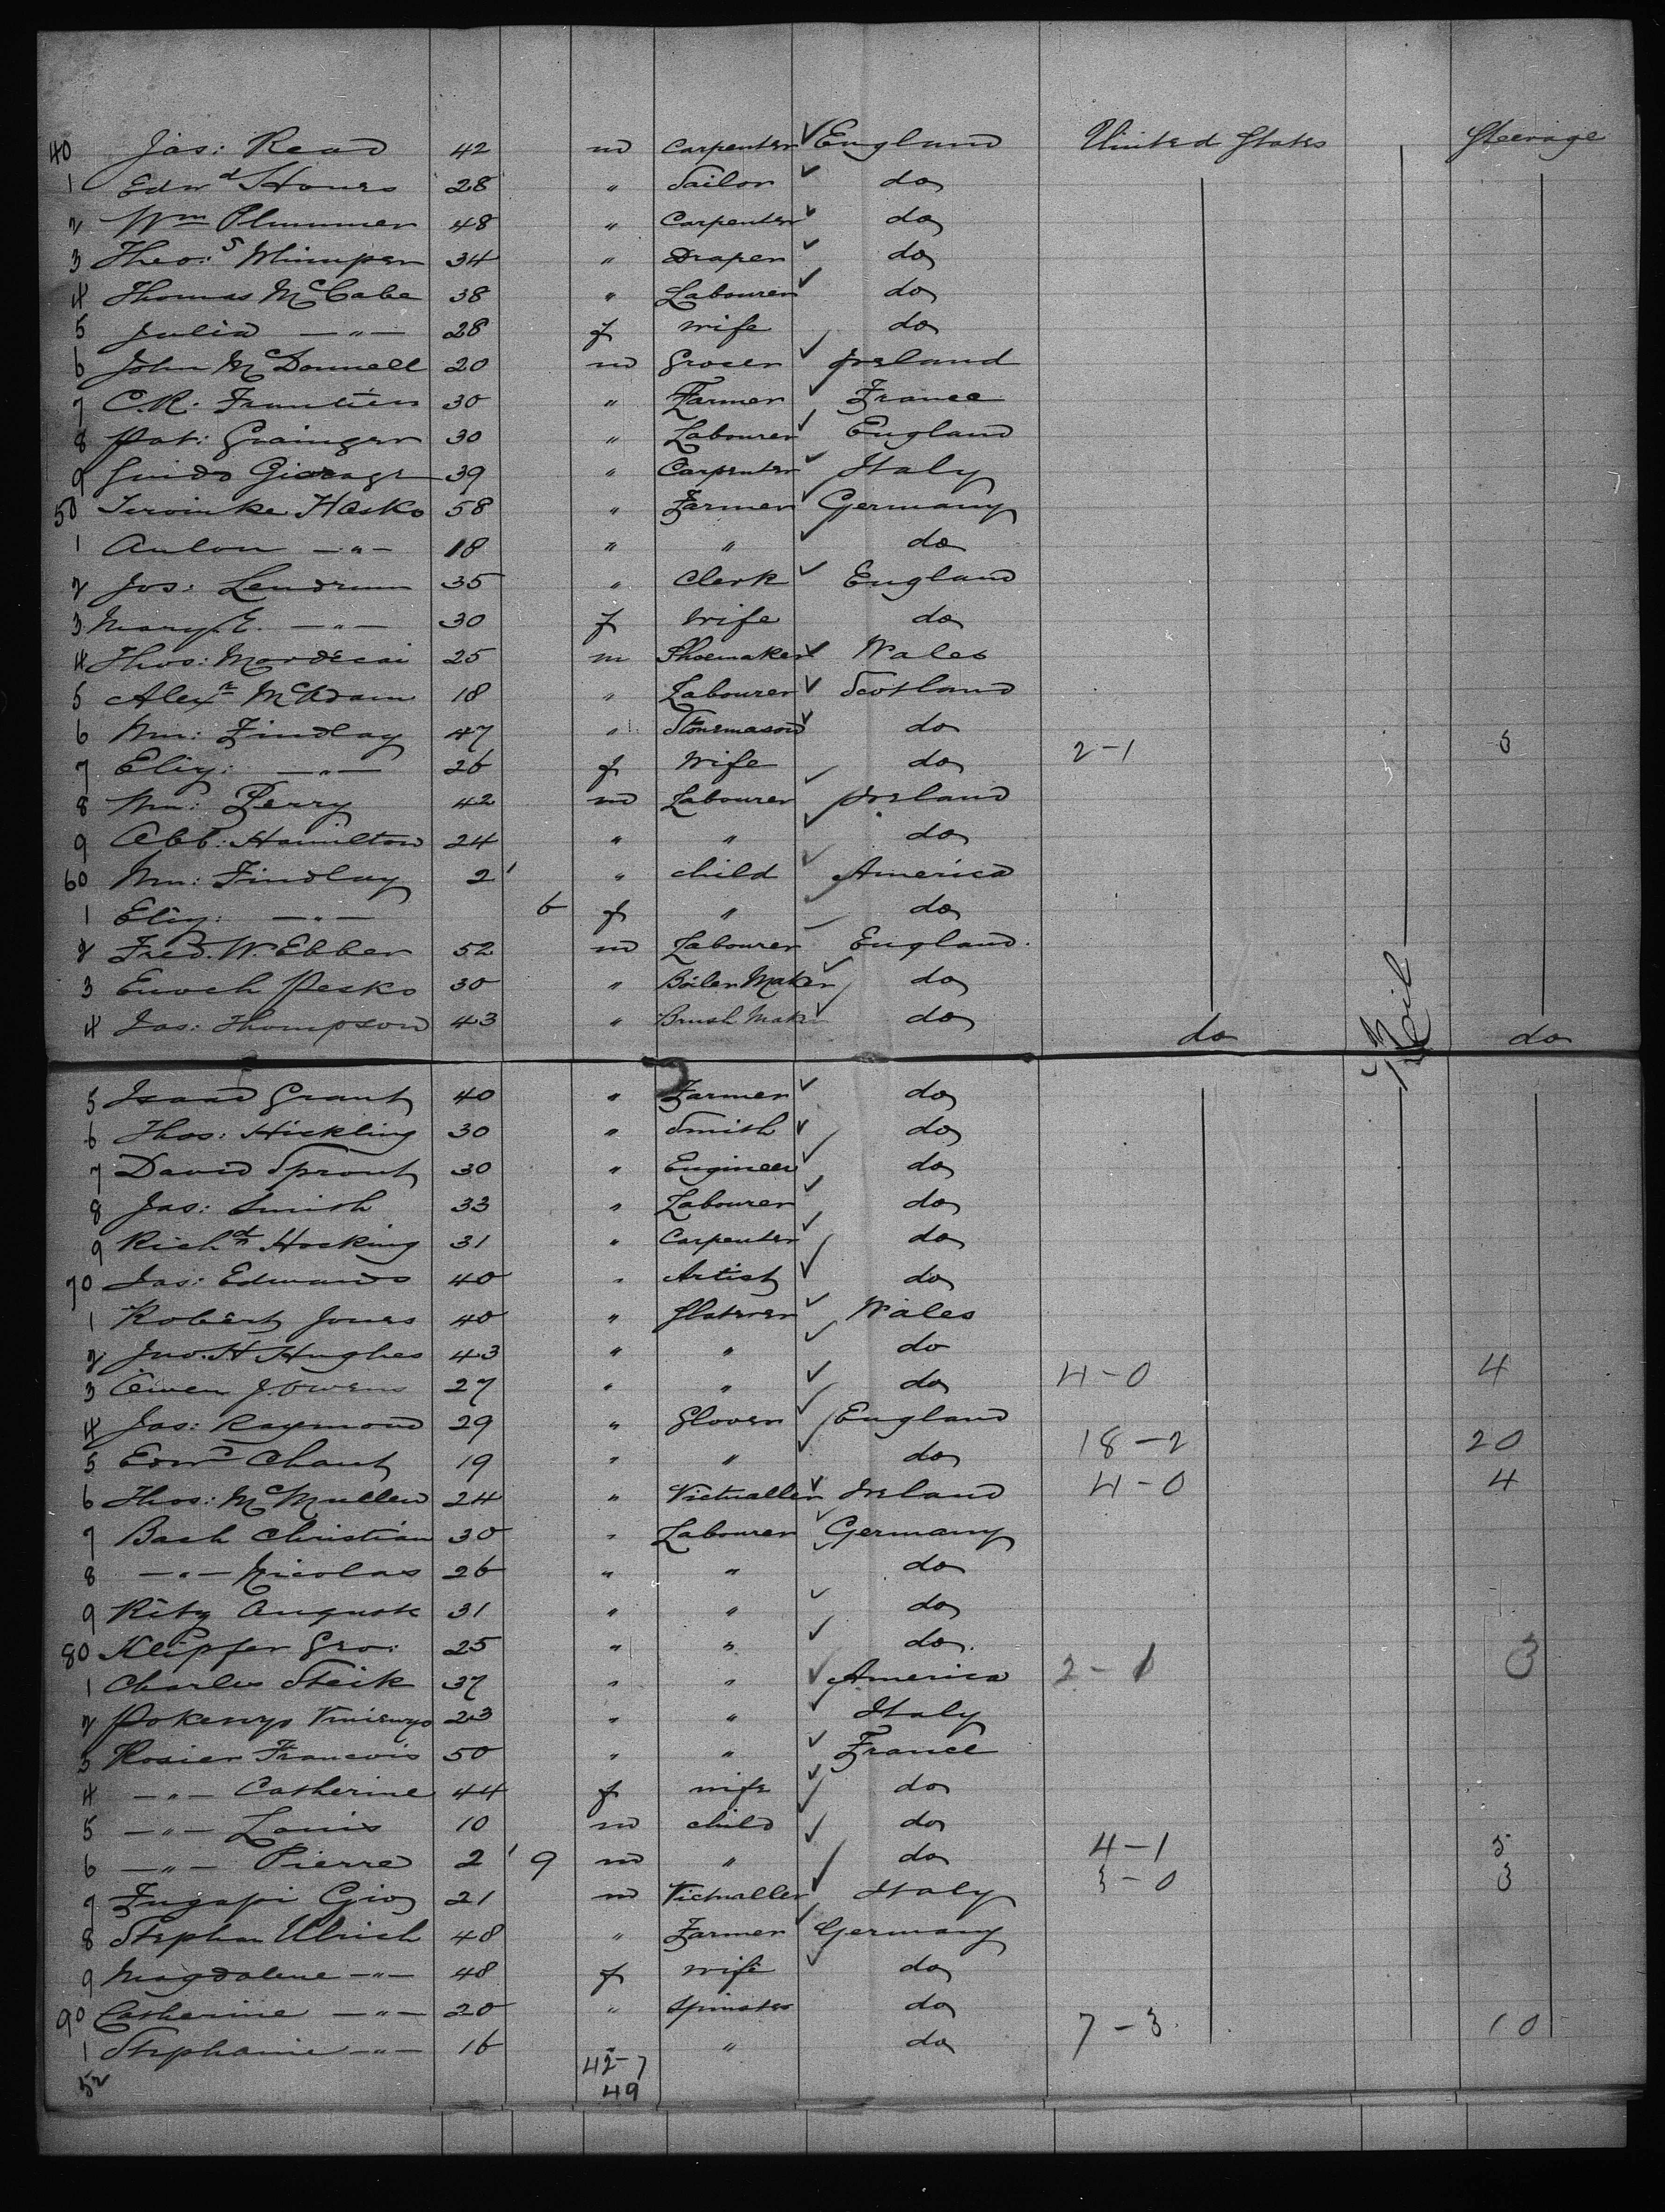 40 Jas: Read 42 m Carpenter England United States Steerage
1 Edwd 28 " Sailor do
2 Wm Plummer 48 " Carpenter do
3 Theo:s Whimper 34 " Draper do
4 Thomas McCabe 38 " Labourer do
5 Julia —"— 28 f wife do
6 John McDonnell 20 m Grocer Ireland
7 C.R. 30 " Farmer France
8 Pat: Grainger 30 " Labourer England
9 Guido 39 " Carpenter Italy
50 Hasko 58 " Farmer Germany
1 Anton —"— 18 " " do
2 Jos: Lendrum 35 " Clerk England
3 Mary E. —"— 30 f Wife do
4 Thos: Mordecai 25 m Shoemaker Wales
5 Alexr McAdam 18 " Labourer Scotland
6 Wm: Findlay 47 " Stonemason do
7 Eliz: —"— 26 f Wife do 2-1 3
8 Wm: Perry 42 m Labourer Ireland
9 Hamilton 24 " " do
60 Wm: Findlay 2 " child America
1 Eliz: —"— 6 f " do
2 Fred. W. Ebber 52 m Labourer England
3 Enoch Pesko 30 " Boiler Maker do
4 Jas: Thompson 43 " Brush Maker do do Nil do
5 Isaac Grant 40 " Farmer do
6 Thos: Hickling 30 " Smith do
7 David Sprout 30 " Engineer do
8 Jas: Smith 33 " Labourer do
9 Richd Hocking 31 " Carpenter do
70 Jas: Edwards 40 " Artist do
1 Robert Jones 40 " Slaterer Wales
2 Jno. H Hughes 43 " " do
3 Owen J. Owens 27 " " do 4-0 4
4 Jas: Raymond 29 " Glover England
5 Edwd Chant 19 " " do 18-2 20
6 Thos: McMullen 24 " Victualler Ireland 4-0 4
7 Bach Christian 30 " Labourer Germany
8 —"— Nicolas 26 " " do
9 Ritz August 31 " " do
80 Klipfer Geo: 25 " " do
1 Charles Steik 37 " " America 2-1 3
2 23 " " Italy
3 Rosier Francois 50 " " France
4 —"— Catherine 44 f wife do
5 —"— Louis 10 m child do
6 —"— Pierre 2 9 m " do 4-1 5
7 Gio 21 m Victualler Italy 3-0 3
8 Stephan Ulrich 48 " Farmer Germany
9 Magdalene —"— 48 f wife do
90 Catherine —"— 20 " Spinster do
1 Stephanie —"— 16 " " do 7-3 10
52 42-7
49